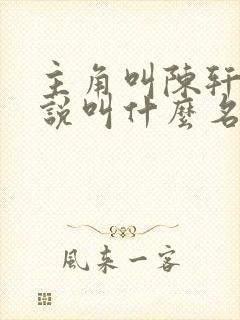 主角叫陳軒
說叫什麼名
風來一客